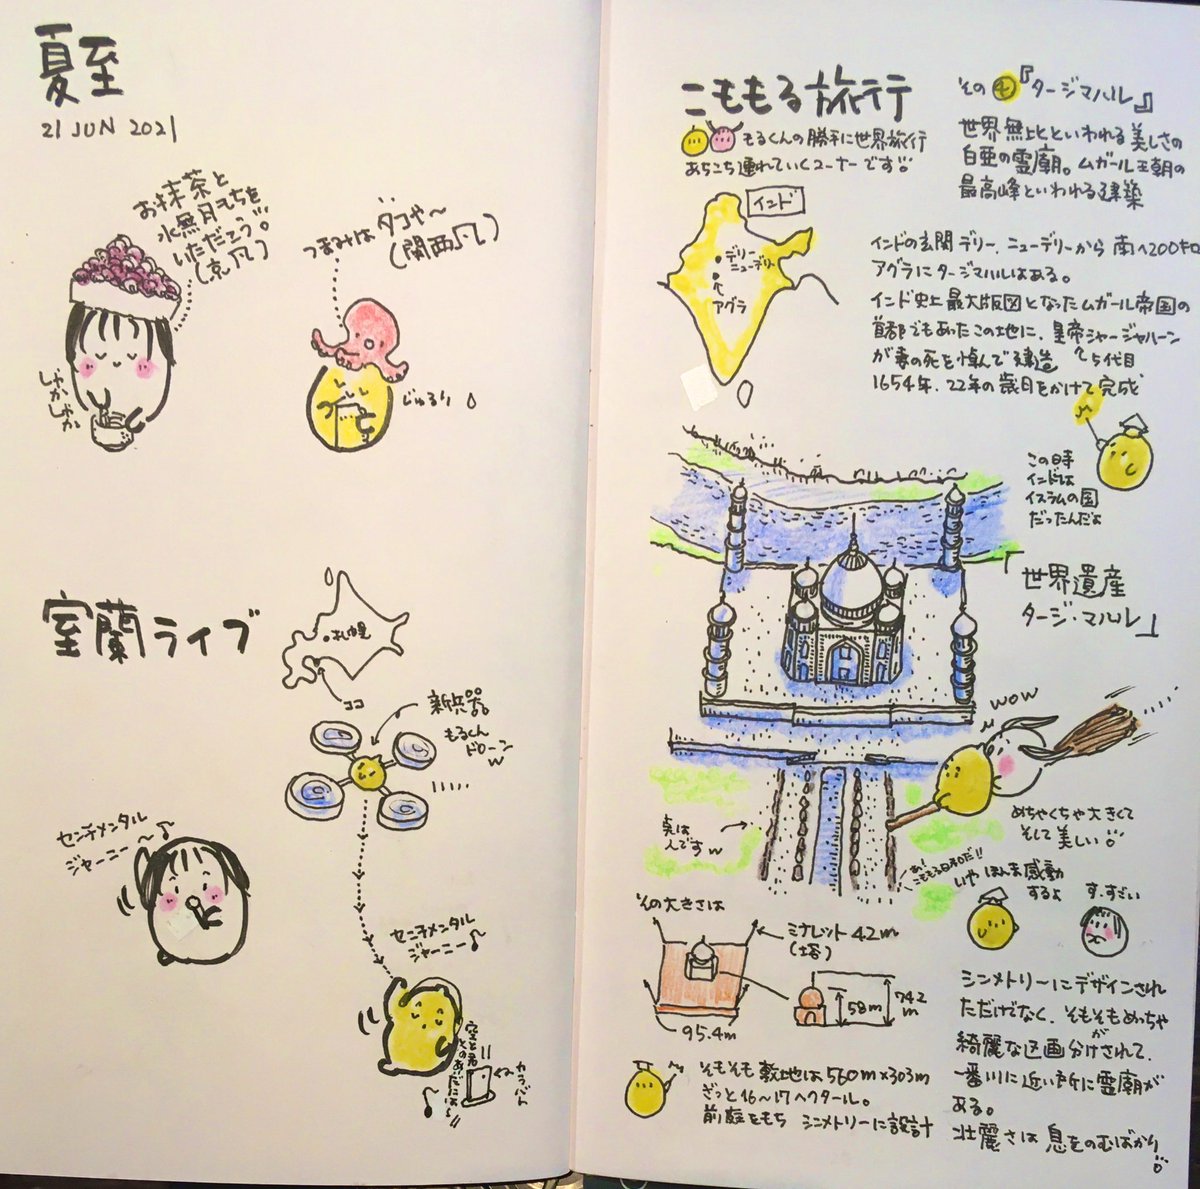 夏至
21 JUN 2021
お抹茶と
水無月もちを
いただこう
(京風)
しゃかしゃか
つまみはタコや〜
(関西風)
じゅるり
室蘭ライブ
札幌
ココ
新兵器
もるくん
ドローン
w
センチメンタル
ジャーニー〜♪
センチメンタル
ジャーニー♪
空と君
とのあいだには〜!!
カラバト
こももる旅行
もるくんの勝手に世界旅行
あちこち連れていくコーナーです
インド
デリー
ニューデリー
アグラ
その④『タージマハル』
世界無比といわれる美しさの
白亜の霊廟。ムガール王朝の
最高峰といわれる建築
インドの玄関デリー、ニューデリーから南へ200キロ
アグラにタージマハルはある。
インド史上最大版図となったムガール帝国の
首都でもあったこの地に、皇帝シャージャハーン
が妻の死を悼んで建造 5代目
1654年、22年の歳月をかけて完成
この時
インドは
イスラムの国
だったんだよ
「世界遺産
タージ・マハル」
WOW
めちゃくちゃ大きくて
そして美しい
点は
人ですw
あ!
こももる日和だ!!
いや ほんま感動
するよ
す、すごい
その大きさは
ミナレット 42m
(塔)
95.4m
58m
74.2
m
そもそも敷地は560m×303m
ざっと16〜17ヘクタール。
前庭をもち シンメトリーに設計
シンメトリーにデザインされ
ただけでなく、そもそもめっちゃ
綺麗な区画分けがされて、
一番川に近い所に霊廟が
ある。
壮麗さは息をのむばかり